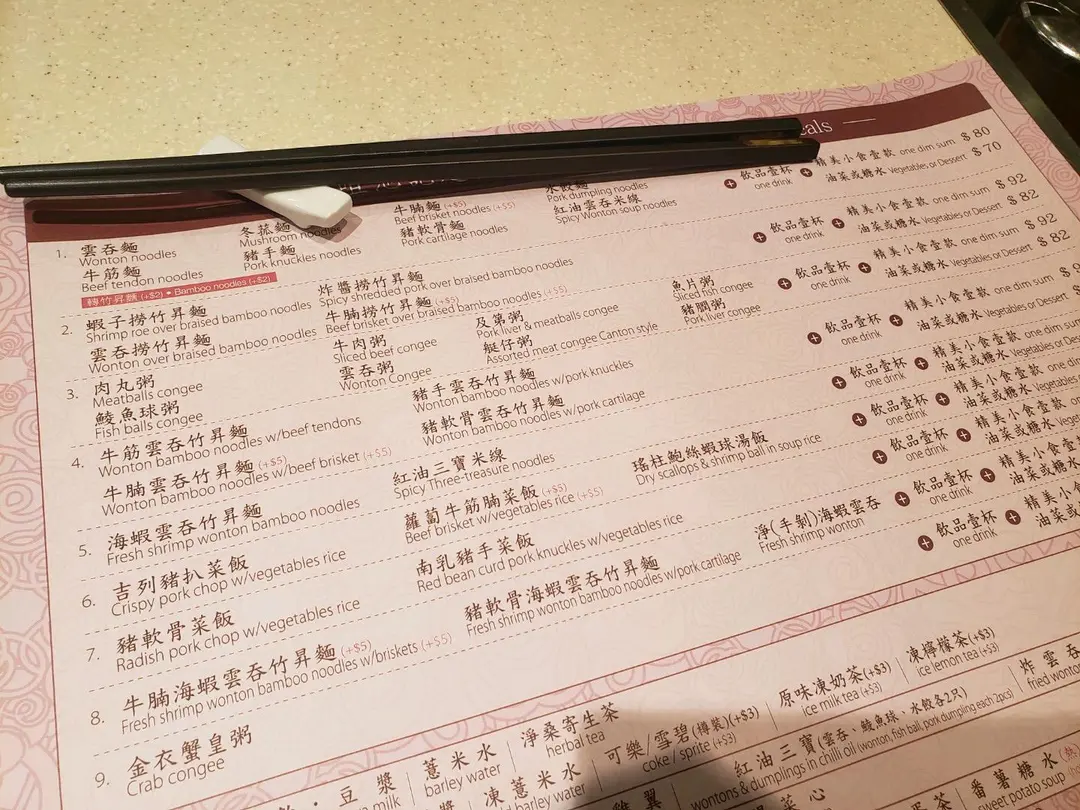 eals
1. 雲吞麵 冬菰麵 牛腩麵 (+$5) 水餃麵
Wonton noodles Mushroom noodles Beef brisket noodles (+$5) Pork dumpling noodles
牛筋麵 豬手麵 豬軟骨麵 紅油雲吞米線
Beef tendon noodles Pork knuckles noodles Pork cartilage noodles Spicy Wonton soup noodles
轉竹昇麵 (+$2) • Bamboo noodles (+$2)
飲品壹杯 one drink 精美小食壹款 one dim sum $ 80
油菜或糖水 Vegetables or Dessert $ 70
2. 蝦子撈竹昇麵 炸醬撈竹昇麵
Shrimp roe over braised bamboo noodles Spicy shredded pork over braised bamboo noodles
雲吞撈竹昇麵 牛腩撈竹昇麵 (+$5)
Wonton over braised bamboo noodles Beef brisket over braised bamboo noodles (+$5)
飲品壹杯 one drink 精美小食壹款 one dim sum $ 92
油菜或糖水 Vegetables or Dessert $ 82
3. 肉丸粥 牛肉粥 及第粥 魚片粥
Meatballs congee Sliced beef congee Pork liver & meatballs congee Sliced fish congee
鯪魚球粥 雲吞粥 艇仔粥 豬膶粥
Fish balls congee Wonton Congee Assorted meat congee Canton style Pork liver congee
飲品壹杯 one drink 精美小食壹款 one dim sum $ 92
油菜或糖水 Vegetables or Dessert $ 82
4. 牛筋雲吞竹昇麵 豬手雲吞竹昇麵
Wonton bamboo noodles w/beef tendons Wonton bamboo noodles w/pork knuckles
牛腩雲吞竹昇麵 (+$5) 豬軟骨雲吞竹昇麵
Wonton bamboo noodles w/beef brisket (+$5) Wonton bamboo noodles w/pork cartilage
飲品壹杯 one drink 精美小食壹款 one dim sum
油菜或糖水 Vegetables or Dessert
5. 海蝦雲吞竹昇麵 紅油三寶米線 瑤柱鮑絲蝦球湯飯
Fresh shrimp wonton bamboo noodles Spicy Three-treasure noodles Dry scallops & shrimp ball in soup rice
飲品壹杯 one drink 精美小食壹款 one dim sum
油菜或糖水 Vegetables or Desse
6. 吉列豬扒菜飯 蘿蔔牛筋腩菜飯 (+$5)
Crispy pork chop w/vegetables rice Beef brisket w/vegetables rice (+$5)
飲品壹杯 one drink 精美小食壹款 one dim
油菜或糖水 Vegetables
7. 豬軟骨菜飯 南乳豬手菜飯
Radish pork chop w/vegetables rice Red bean curd pork knuckles w/vegetables rice
飲品壹杯 one drink 精美小食壹款 one
油菜或糖水
8. 牛腩海蝦雲吞竹昇麵 (+$5) 豬軟骨海蝦雲吞竹昇麵 淨(手剝)海蝦雲吞
Fresh shrimp wonton bamboo noodles w/briskets (+$5) Fresh shrimp wonton bamboo noodles w/pork cartilage Fresh shrimp wonton
飲品壹杯 one drink 精美小食壹
油菜或糖
9. 金衣蟹皇粥
Crab congee
飲品壹杯 one drink 精美小
油菜或
豆漿 薏米水 淨桑寄生茶 可樂/雪碧(樽裝)(+$3) 原味凍奶茶(+$3) 凍檸檬茶(+$3)
milk barley water herbal tea coke / sprite (+$3) ice milk tea (+$3) ice lemon tea (+$3)
凍薏米水 紅油三寶(雲吞、鯪魚球、水餃各2只) 炸雲吞
barley water wontons & dumplings in chilli oil (wonton, fish ball, pork dumpling each 2pcs) fried wonto
菜心 茶 番薯糖水 (熱
potato soup